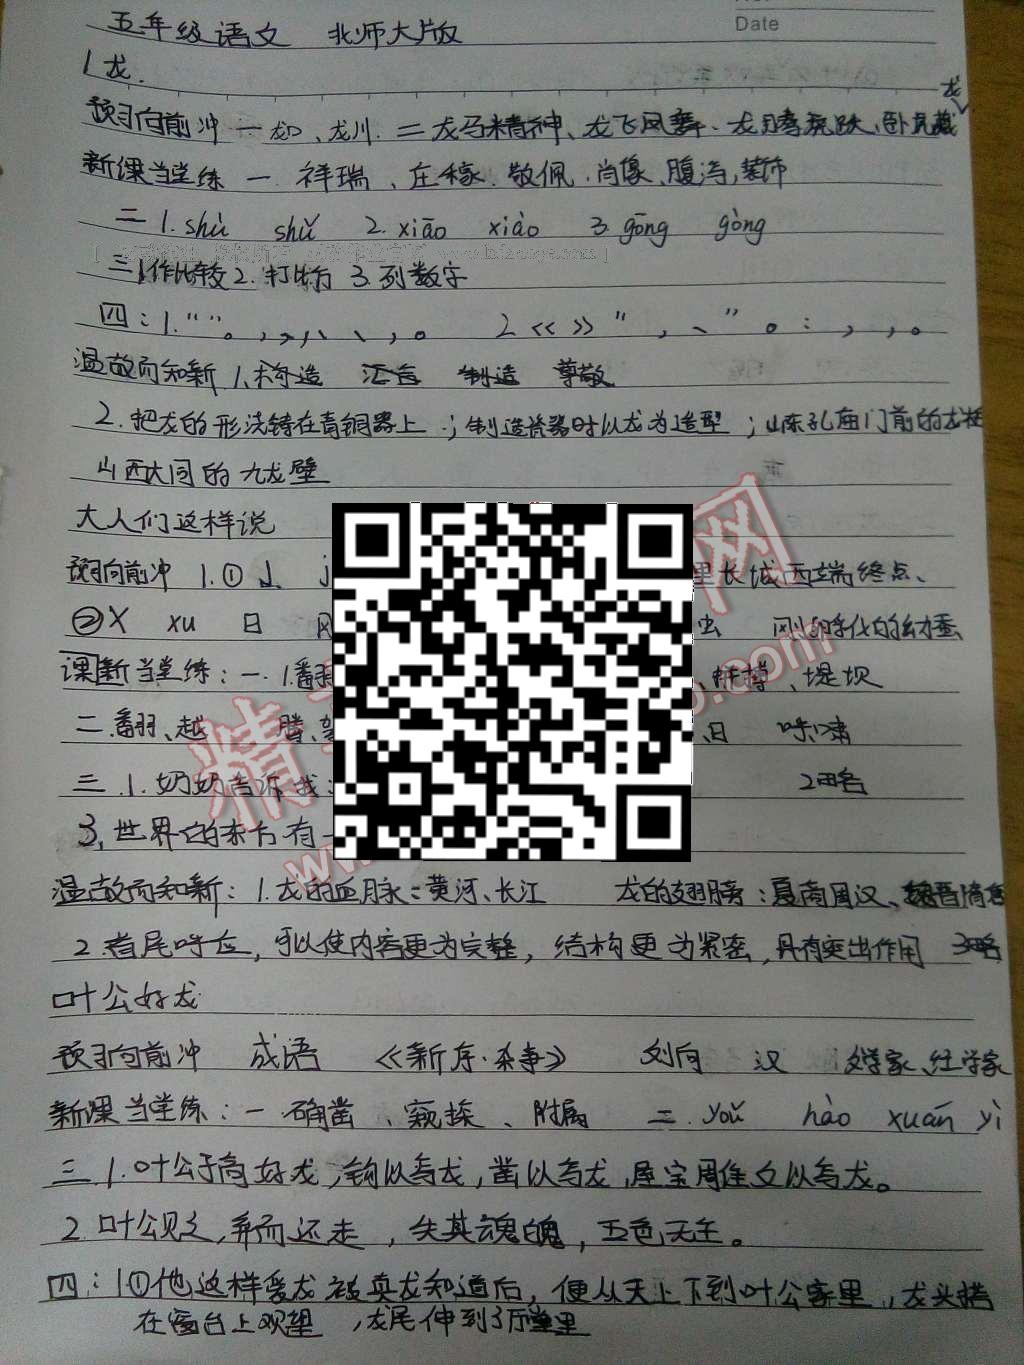 Date
五年级语文 北师大版
1龙.
预习向前冲 一 龙口、龙川. 二 龙马精神、龙飞凤舞、龙腾虎跃、卧虎藏龙
新课当堂练 一. 祥瑞、庄稼.敬佩.肖像、腹泻,装饰
二 1.shù shǔ 2.xiāo xiào 3.gōng gòng
三 1作比较 2.打比方 3.列数字
四:1.“”。,,、、,。 2《》“,、”。:,,。
温故而知新 1、 制造 尊敬
2.把龙的形浇铸在青铜器上;制造瓷器时以龙为造型;山东孔庙门前的龙柱
山西大同的九龙壁
大人们这样说
预习向前冲 1.①J j 里长城西端终点、
②X xu 日 虫 刚孵化的幼蚕
课新当堂练:一.1.翻 、堤坝
二.翻、越 腾、 、日 呼啸
三.1.奶奶告诉我 2略
3,世界的东方有一
温故而知新:1.龙的血脉:黄河、长江 龙的翅膀:夏商周汉、
2.首尾呼应,可以使内容更为完整,结构更为紧密,具有突出作用 3略
叶公好龙
预习向前冲 成语 《新序·杂事》 刘向 汉 文学家、经学家
新课当堂练:一.确凿、窥探、附属 二.yǒu hào xuán yì
三.1.叶公子高好龙,钩以写龙,凿以写龙,屋室雕文以写龙。
2.叶公见之,弃而还走,失其魂魄,五色无主。
四:1①他这样爱龙被真龙知道后,便从天上下到叶公家里,龙头搭
在窗台上观望,龙尾伸到了厅堂里